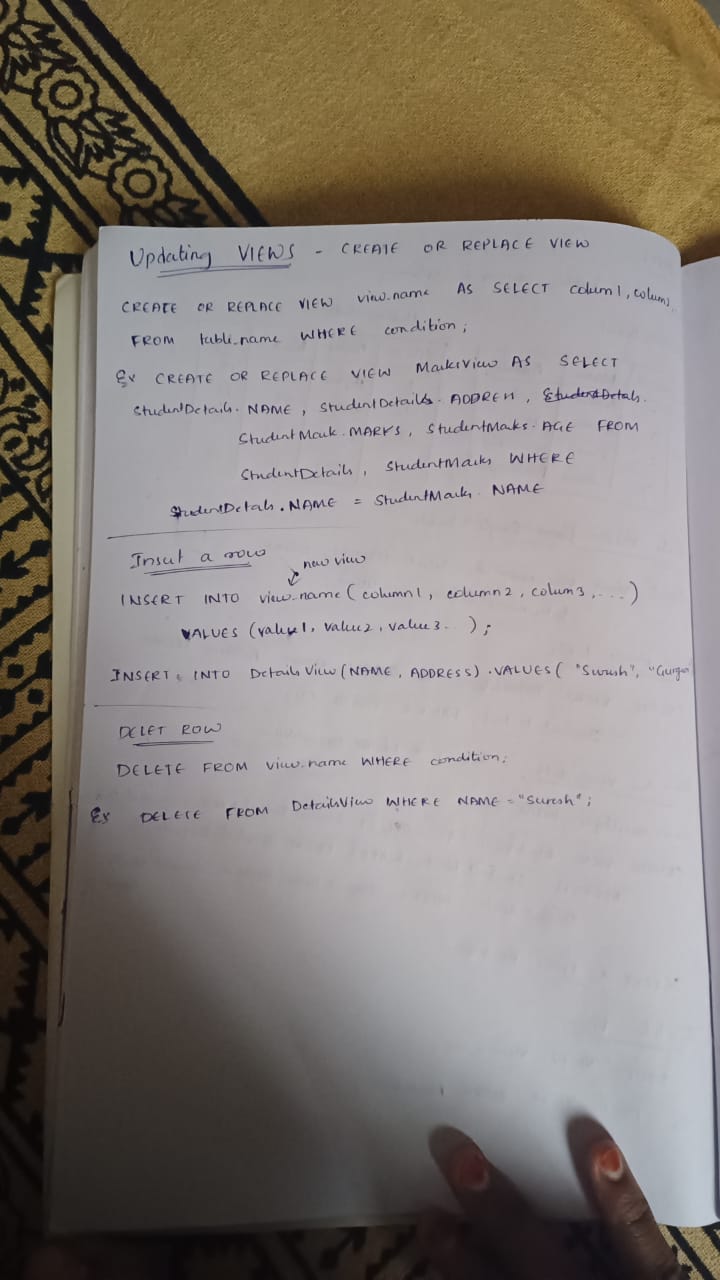 Updating VIEWS - CREATE OR REPLACE VIEW
CREATE OR REPLACE VIEW view_name AS SELECT colum1, colum
FROM table_name WHERE condition;
Ex CREATE OR REPLACE VIEW MarksView AS SELECT
StudentDetails.NAME, StudentDetails.ADDRESS,
StudentMark.MARKS, StudentMarks.AGE FROM
StudentDetails, StudentMarks WHERE
StudentDetails.NAME = StudentMarks.NAME
Insert a row
new view
INSERT INTO view_name (column1, column2, colum3, ...)
VALUES (value1, value2, value3 .. );
INSERT INTO DetailsView (NAME, ADDRESS).VALUES( "Suresh", "Gurgao
DELET ROW
DELETE FROM view_name WHERE condition;
Ex DELETE FROM DetailsView WHERE NAME = "Suresh";